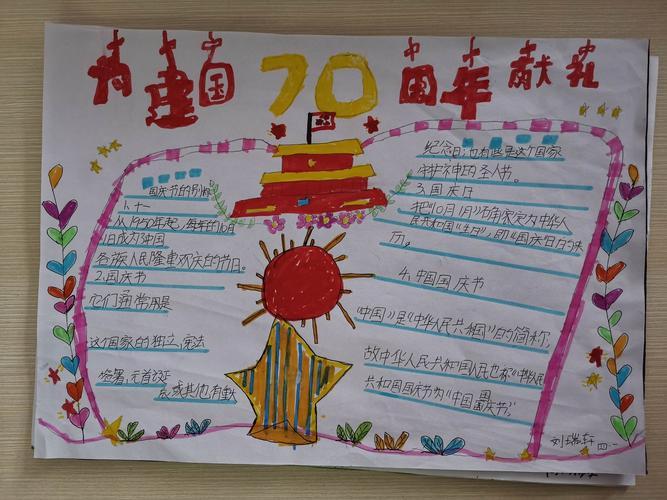 为建国70周年献礼
国庆节的别称
1、十一
从1950年起,每年的10月
1日成为我国
各族人民隆重欢庆的节日。
2.国庆节
它们通常是
这个国家的独立、宪法
签署、元首诞辰或其他有重大
纪念日;也有些是这个国家
守护神的圣人节。
3.国庆日
把"10月1日"确定为中华人
民共和国"生日",即"国庆日"的来
历。
4、中国国庆节
"中国"是"中华人民共和国"的简称,
故中华人民共和国人民也称"中华人民
共和国国庆节"为"中国国庆节"。
刘瑞轩 四、一